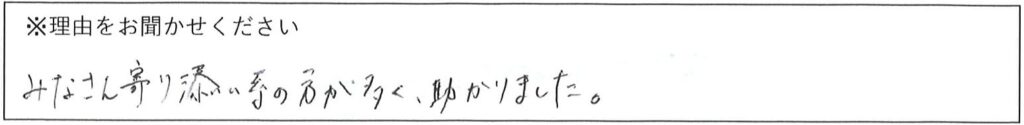 ※理由をお聞かせください
みなさん寄り添い系の方が多く、助かりました。